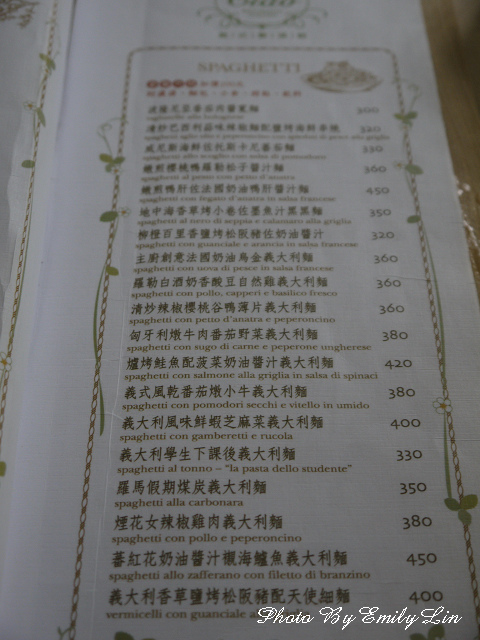 SPAGHETTI
波隆尼亞番茄肉醬寬麵 300
tagliatelle alla bolognese
清炒巴西利蒜味辣椒麵配鹽烤海鮮串燒 320
威尼斯海鮮佐托斯卡尼番茄麵 330
spaghetti allo scoglio con salsa di pomodoro
嫩煎櫻桃鴨羅勒松子醬汁麵 360
spaghetti al pesto con petto d'anatra
嫩煎鴨肝佐法國奶油鴨肝醬汁麵 450
spaghetti con fegato d'anatra in salsa francese
地中海香草烤小卷佐墨魚汁黑黑麵 350
spaghetti al nero di seppia e calamaro alla griglia
柳橙百里香鹽烤松阪豬佐奶油醬汁 320
spaghetti con guanciale e arancia in salsa francese
主廚創意法國奶油烏金義大利麵 360
spaghetti con uova di pesce in salsa francese
羅勒白酒奶香酸豆自然雞義大利麵 360
spaghetti con pollo, capperi e basilico fresco
清炒辣椒櫻桃谷鴨薄片義大利麵 360
spaghetti con petto d'anatra e peperoncino
匈牙利燉牛肉番茄野菜義大利麵 380
spaghetti con sugo di carne e peperone ungherese
爐烤鮭魚配菠菜奶油醬汁義大利麵 420
spaghetti con salmone alla griglia in salsa di spinaci
義式風乾番茄燉小牛義大利麵 380
spaghetti con pomodori secchi e vitello in umido
義大利風味鮮蝦芝麻菜義大利麵 400
spaghetti con gamberetti e rucola
義大利學生下課後義大利麵 330
spaghetti al tonno – "la pasta dello studente"
羅馬假期煤炭義大利麵 350
spaghetti alla carbonara
煙花女辣椒雞肉義大利麵 380
spaghetti con pollo e peperoncino
蕃紅花奶油醬汁襯海鱸魚義大利麵 450
spaghetti allo zafferano con filetto di branzino
義大利香草鹽烤松阪豬配天使細麵 400
vermicelli con guanciale
Photo By Emily Lin